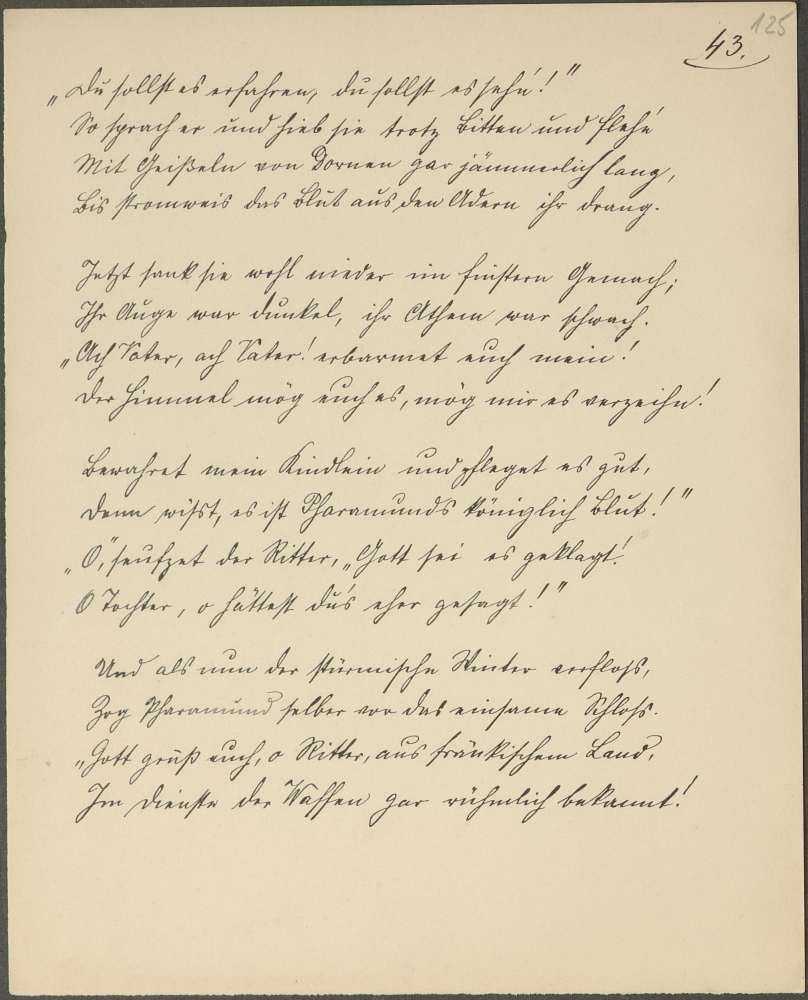 125
43.
„Du sollst es erfahren, du sollst es sehn!"
So sprach er und hieb sie trotz Bitten und Flehn
Mit Geißeln von Dornen gar jämmerlich lang,
Bis stromweis das Blut aus den Adern ihr drang.
Jetzt sank sie wohl nieder im finstern Gemach;
Ihr Auge war dunkel, ihr Athem war schwach.
„Ach Vater, ach Vater! erbarmet euch mein!
Der Himmel mög euch es, mög mir es verzeihn!
Bewahret mein Kindlein und pfleget es gut,
Denn wißt, es ist Pharamunds königlich Blut!"
„O," seufzet der Ritter, „Gott sei es geklagt!
O Tochter, o hättest du's eher gesagt!"
Und als nun der stürmische Winter verfloß,
Zog Pharamund selber vor das einsame Schloß.
„Gott grüß euch, o Ritter, aus fränkischem Land,
Im Dienste der Waffen gar rühmlich bekannt!